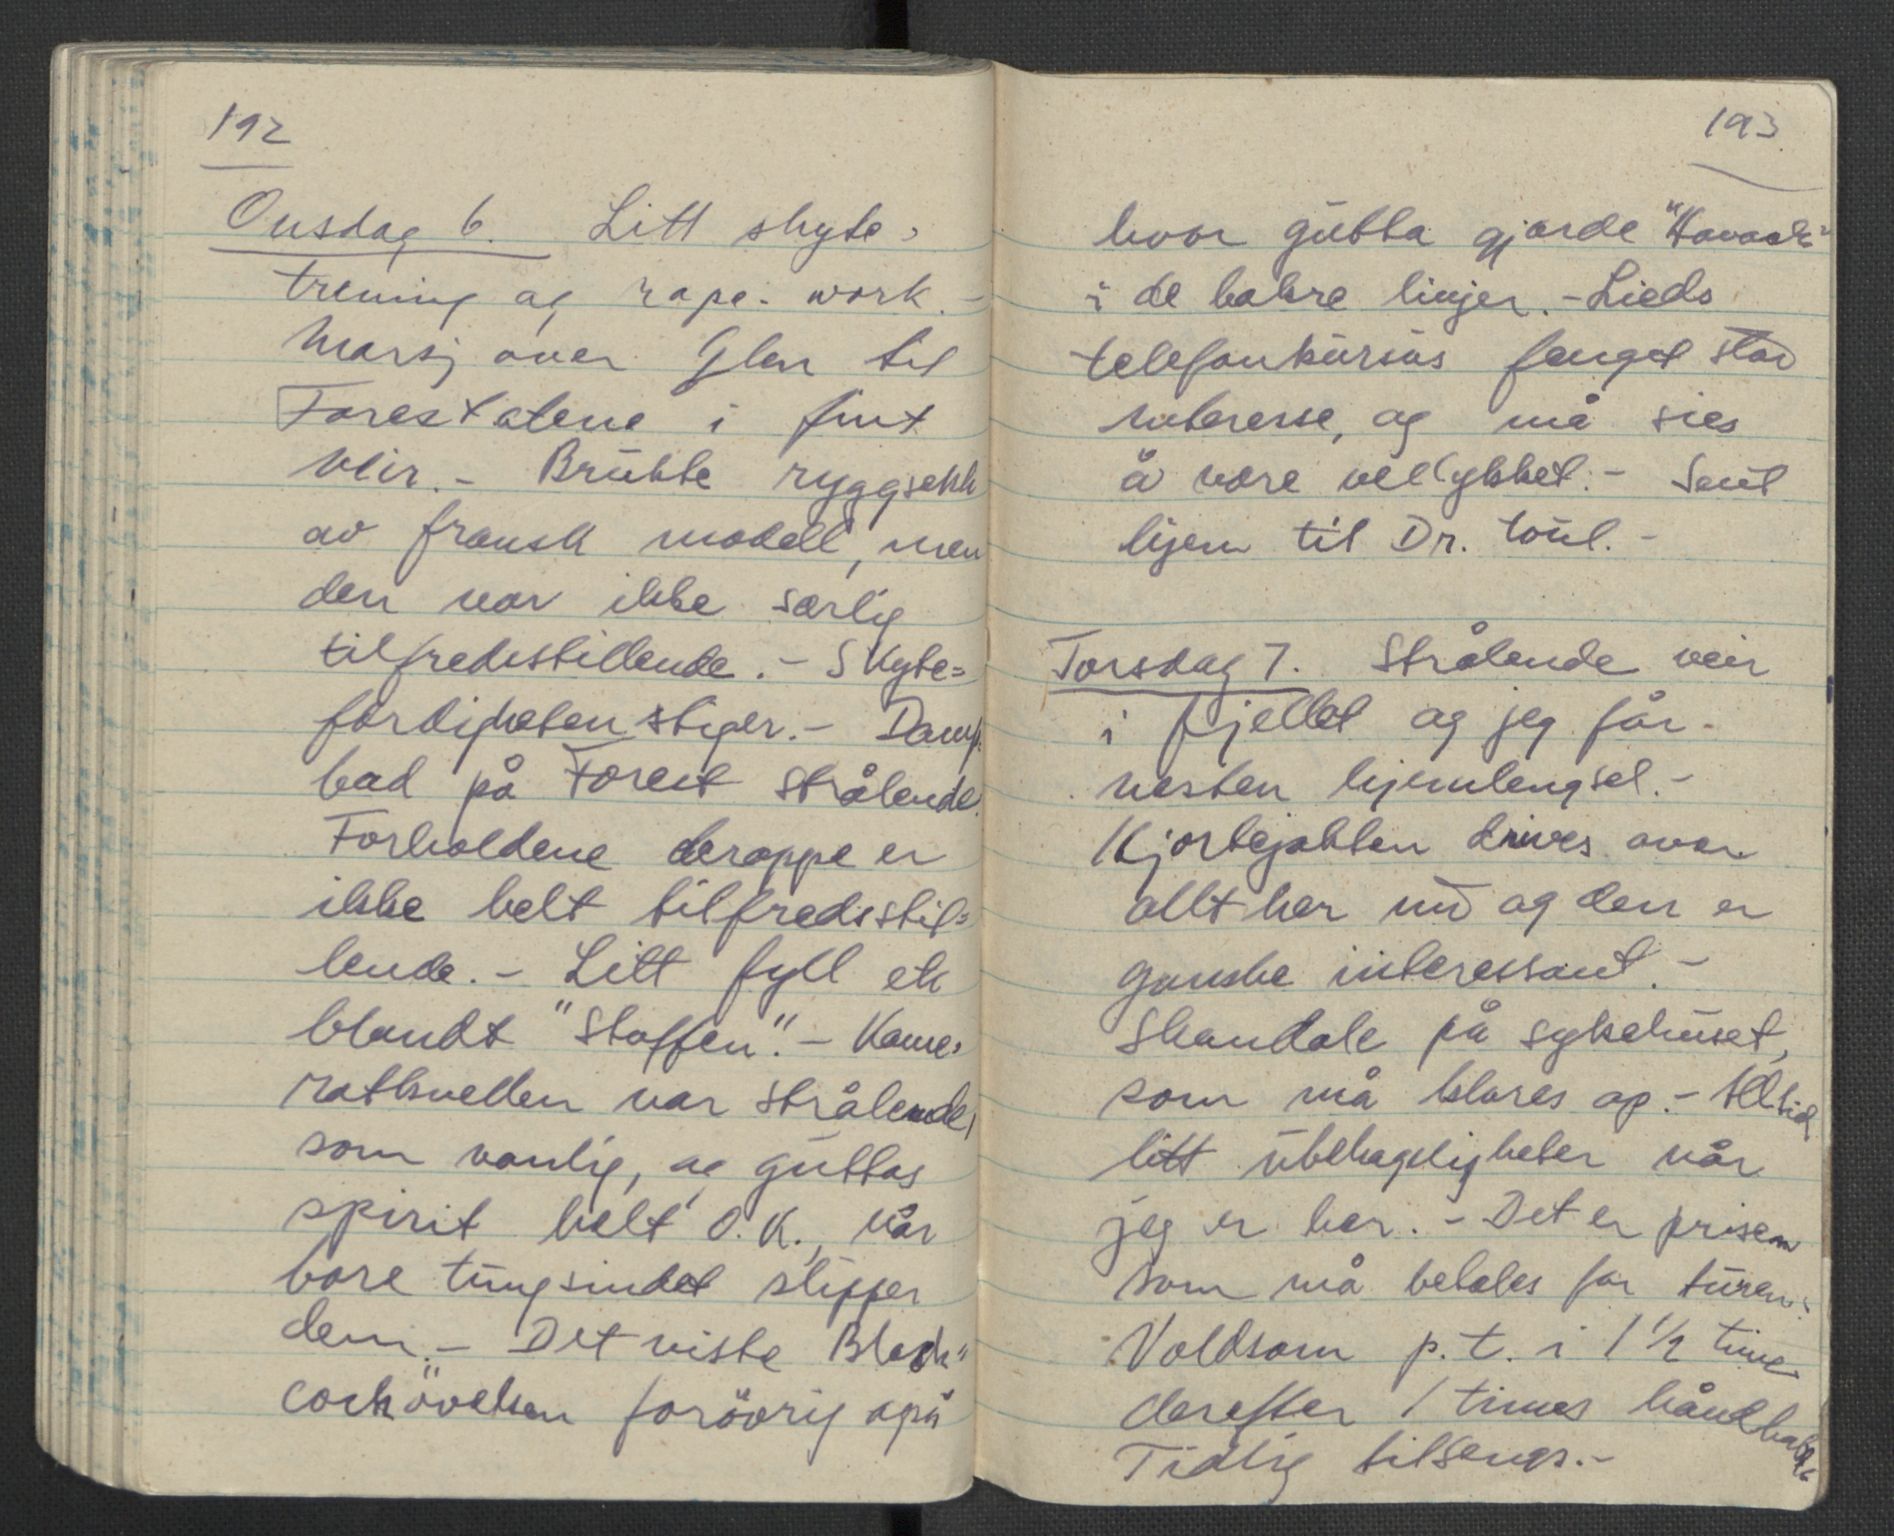 192
Onsdag 6. Litt skyte=
trening og rope-work.-
Marsj over Glen til
Forestalene i fint
veir.- Brukte ryggsekk
av fransk modell, men
den var ikke særlig
tilfredistillende.- Skyte=
ferdigheten stiger.- Damp
bad på Forest strålende.
Forholdene deroppe er
ikke helt tilfredsstil=
lende.- Litt fyll etc
blandt "Staffen".- Kame=
ratkvellen var strålende,
som vanlig, og guttas
spirit helt O.K., når
bare tungsindet slipper
dem.- Det viste "Black
cock" övelsen forövrig også
193
hvor gutta gjorde "Havock"
i de bakre linjer.- Lieds
telefonkursus fenget stor
interesse, og må sies
å være vellykket.- Sent
hjem til Dr. touil.-
Torsdag 7. Strålende veir
i fjellet og jeg får
nesten hjemlengsel.-
Hjortejakten drives over
allt her nu og den er
ganske interessant.-
Skandale på sykehuset,
som må klares op.- Alltid
litt ubehageligheter når
jeg er her.- Det er prisen
som må betales for turen.
Voldsom p.t. i 1 1/2 time
derefter 1 times håndball.
Tidlig tilsengs.-